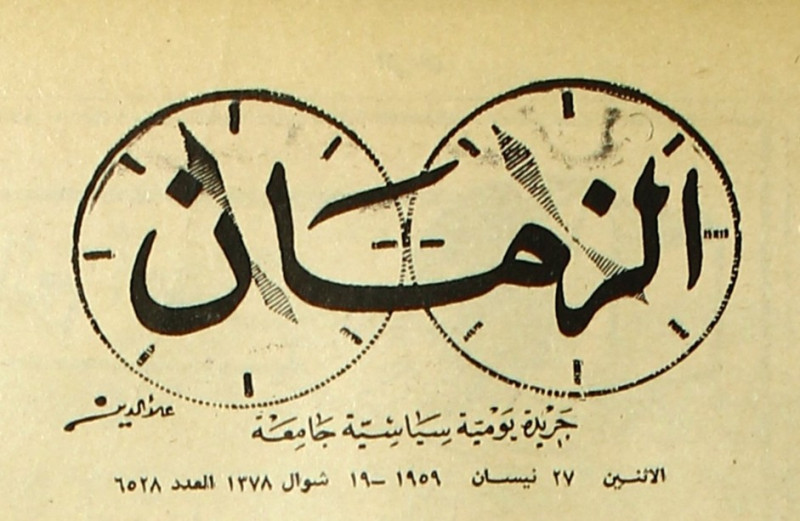 الزمان
علاء الدين
جَرِيْدة يَوْميَّة سِيَاسِيَّة جَامِعَة
الاثنين ٢٧ نيسان ١٩٥٩ -١٩ شوال ١٣٧٨ العدد ٦٥٢٨